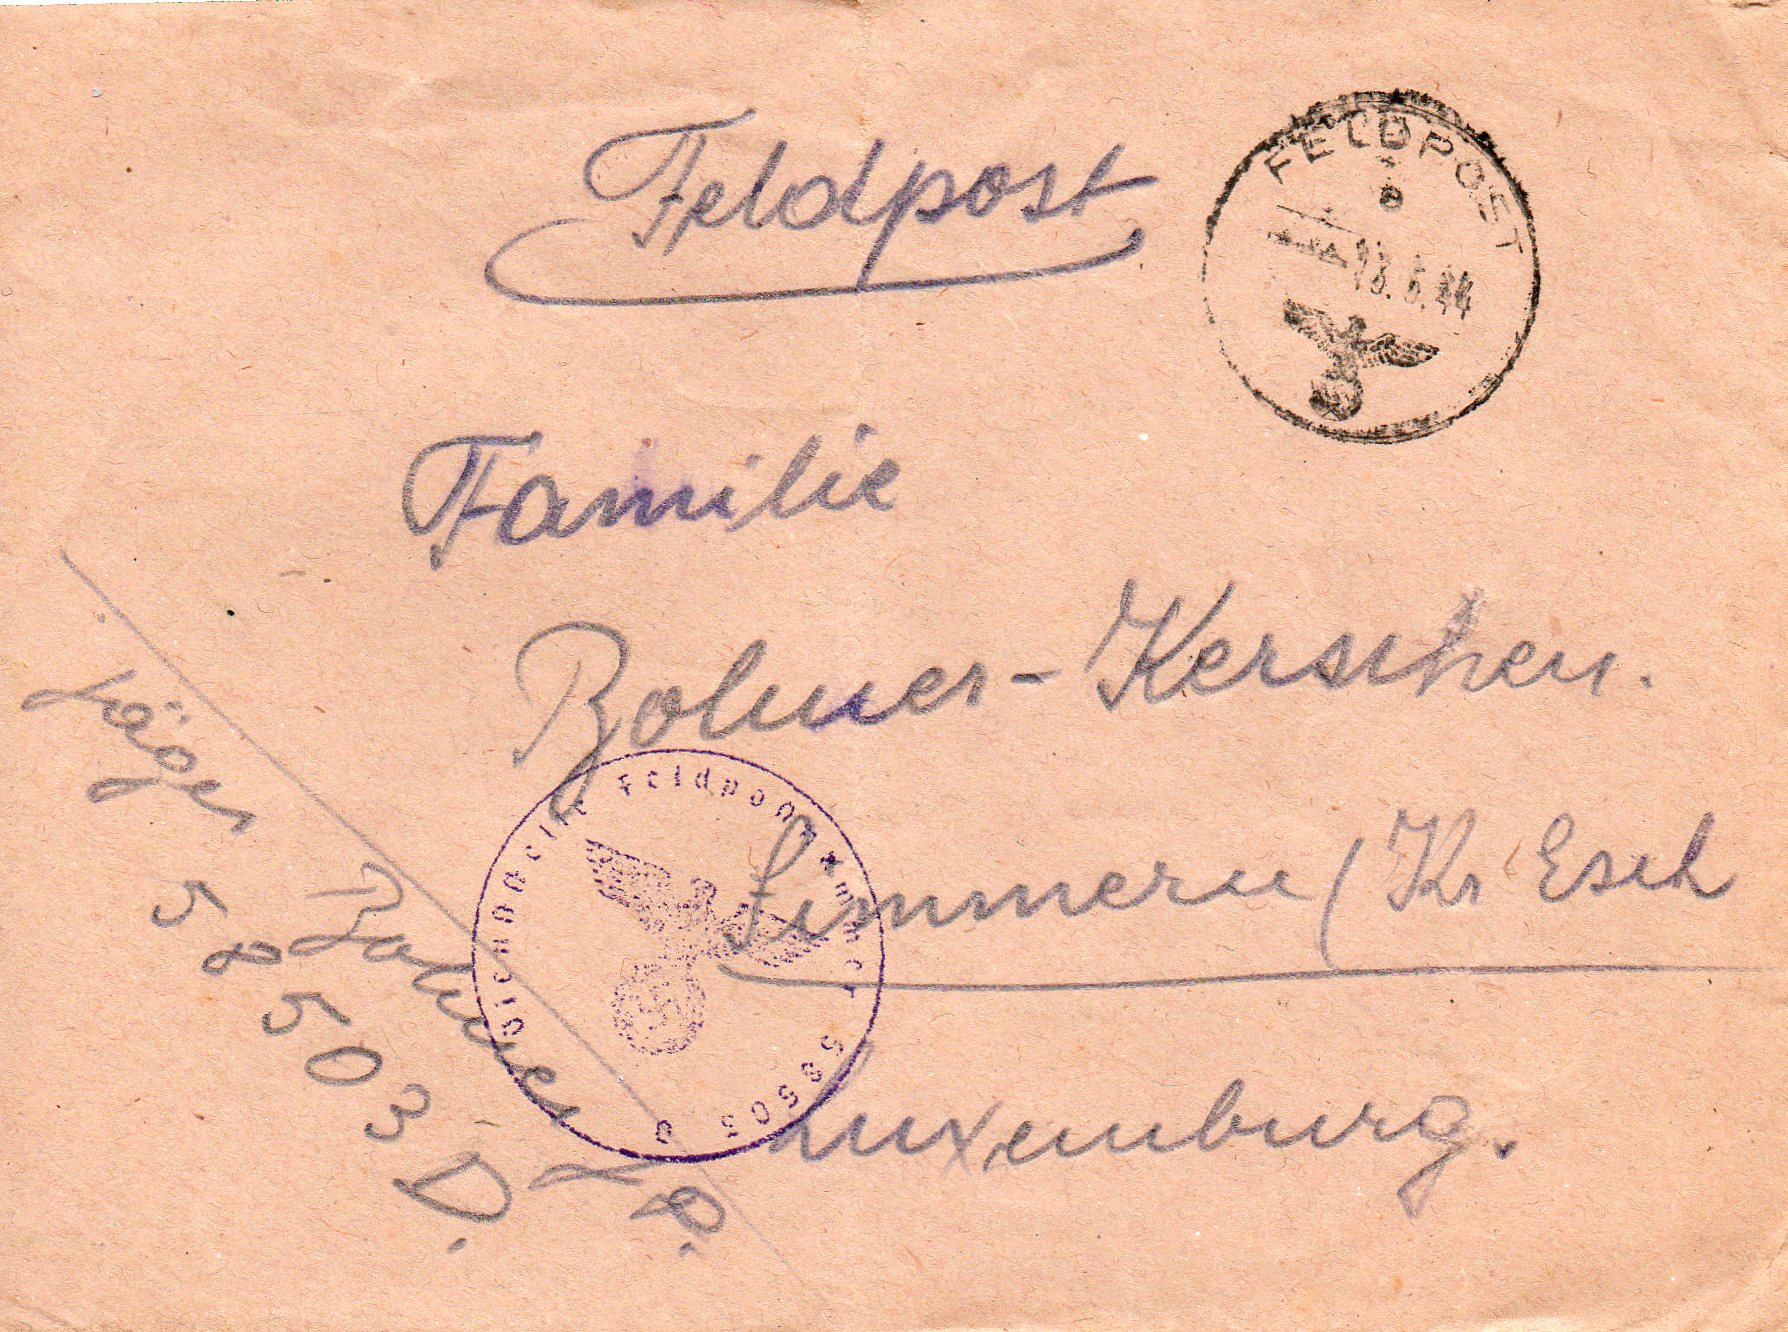 Feldpost
FELDPOST
e
13.5.44
Familie
Bohner-Kerschen.
Simmern/Kr Esch
Luxemburg.
Jäger Bohner
58503 D.
Dienststelle Feldpostnummer 58503 D